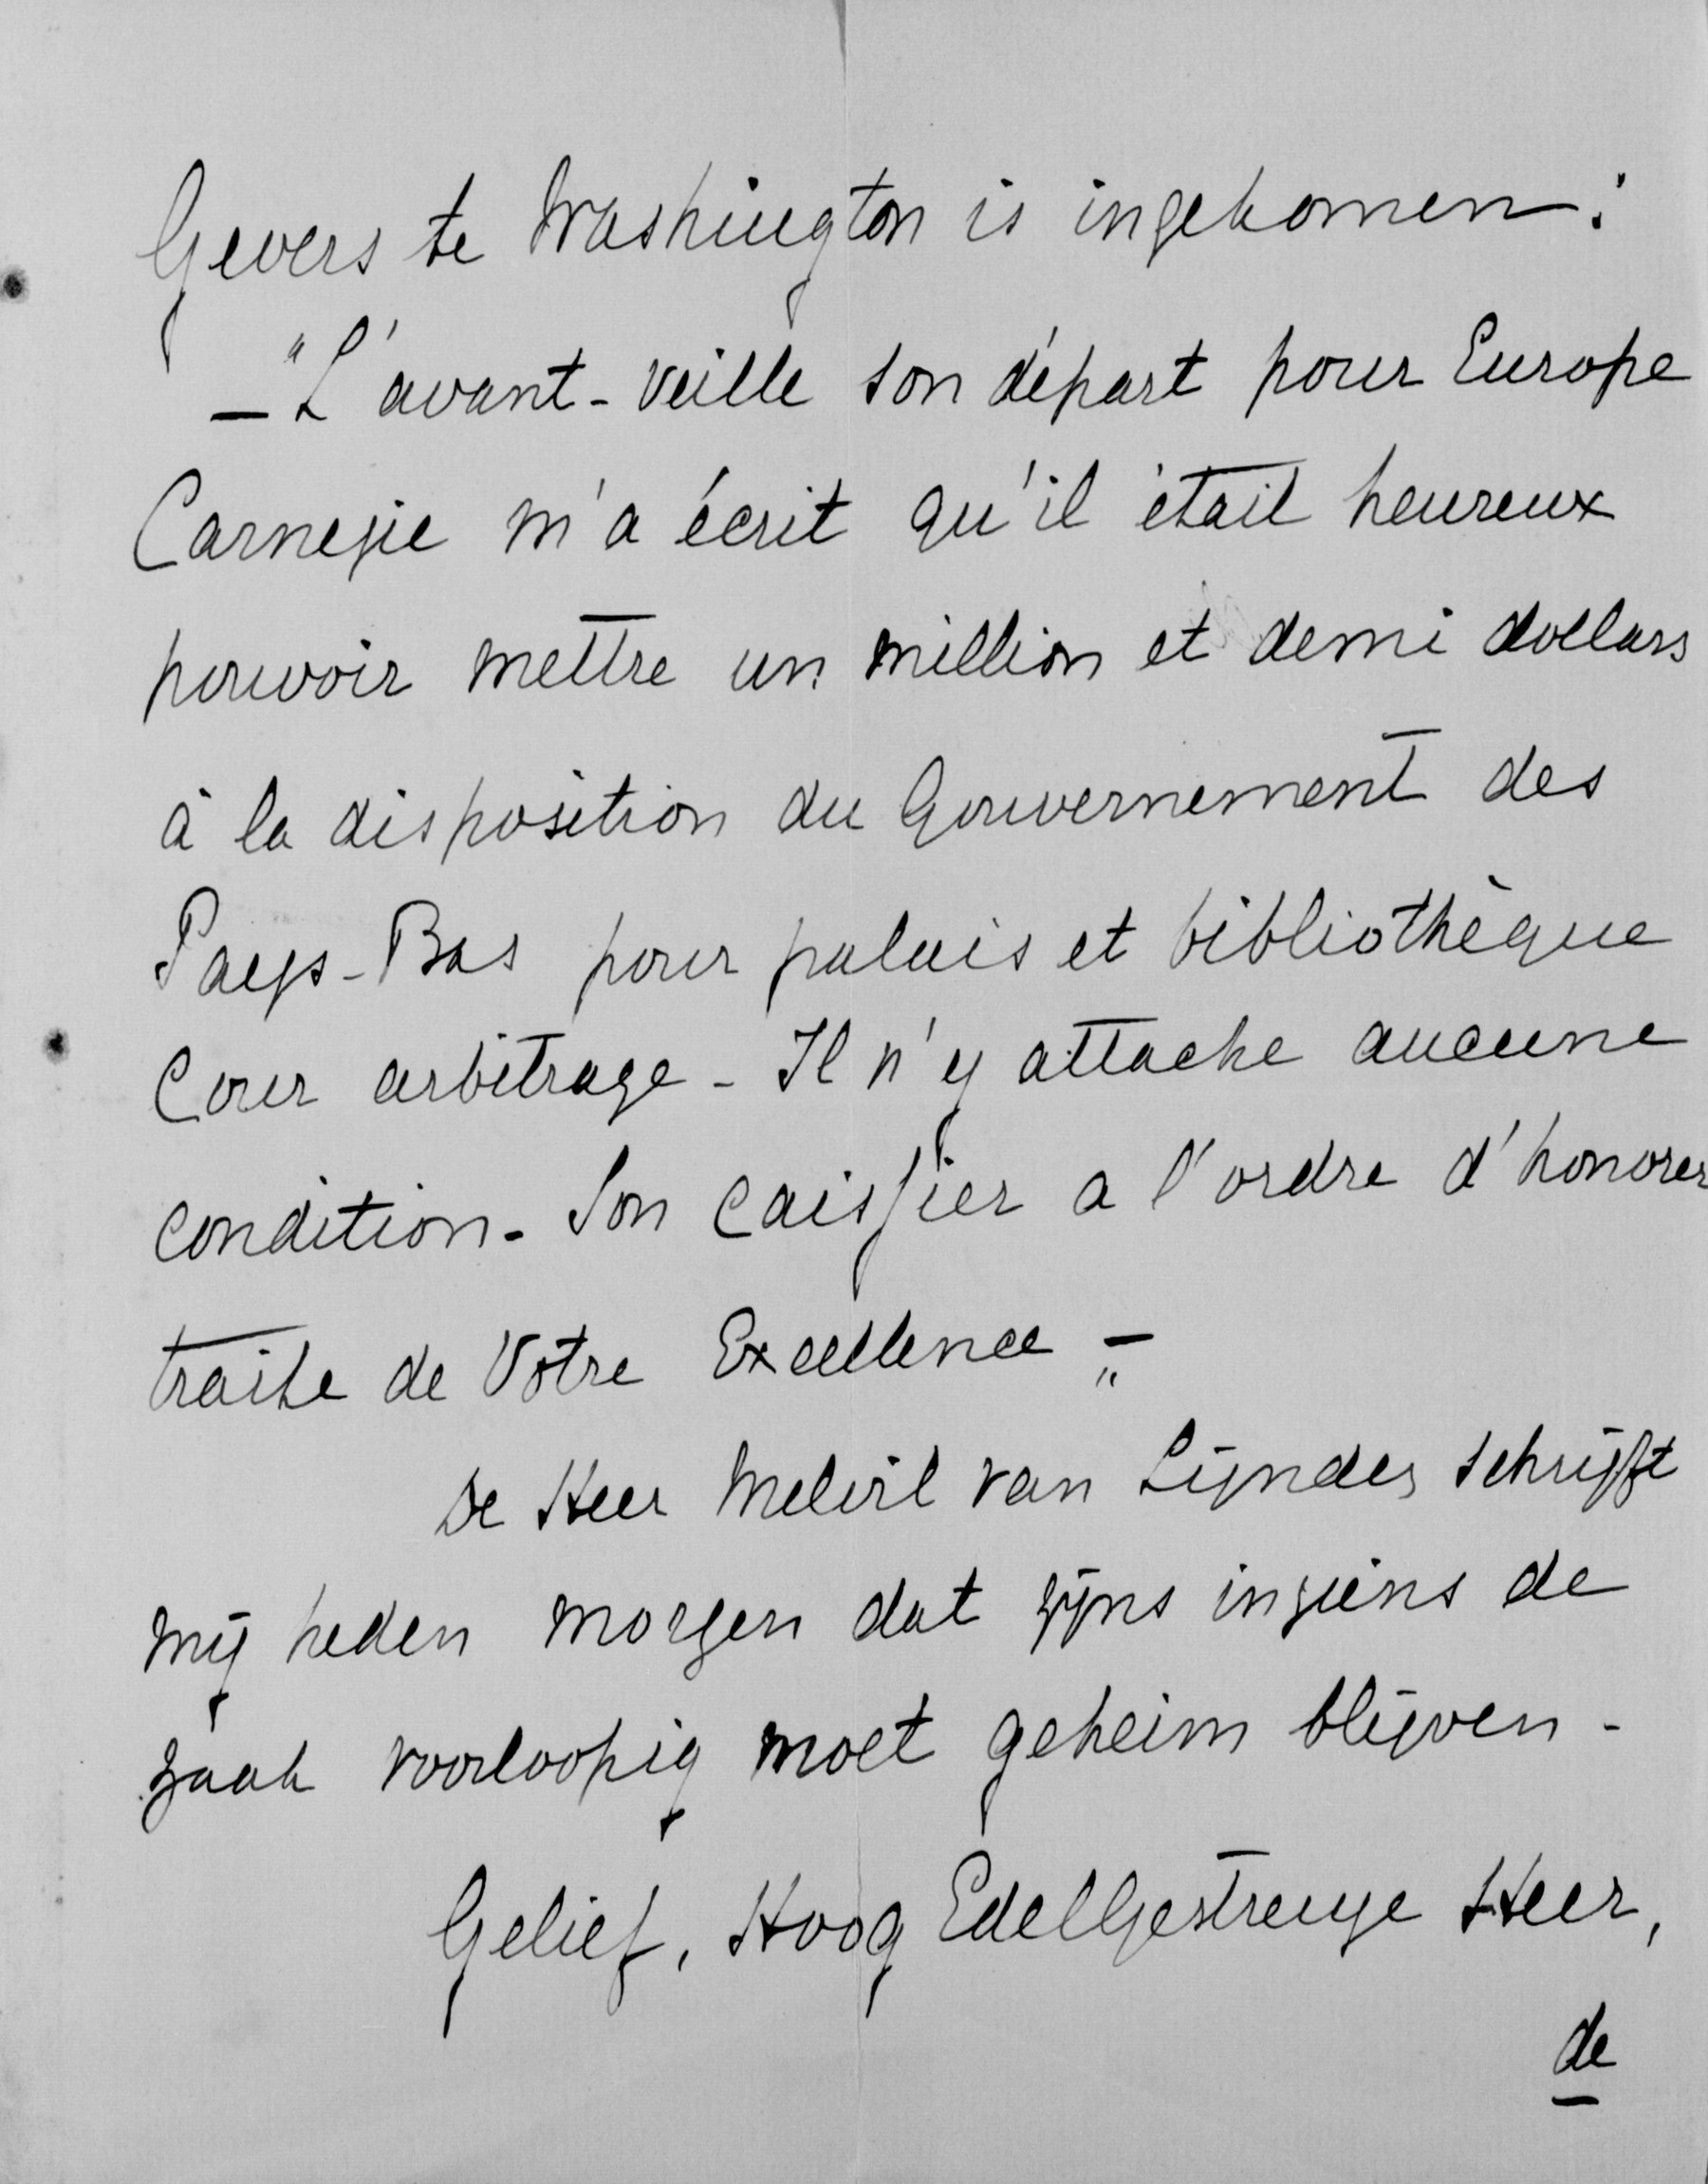 Gevers te Washington is ingekomen:
— "L'avant-veille son départ pour Europe
Carnegie m'a écrit qu'il était heureux
pouvoir mettre un million et demi dollars
à la disposition du Gouvernement des
Pays-Bas pour palais et bibliothèque
Cour arbitrage - Il n'y attache aucune
condition. Son caissier a l'ordre d'honorer
traite de Votre Excellence „—
De Heer Melvil van Lijnden schrijft
mij heden morgen dat zijns inziens de
zaak voorloopig moet geheim blijven -
Gelief, Hoog EdelGestrenge Heer,
de